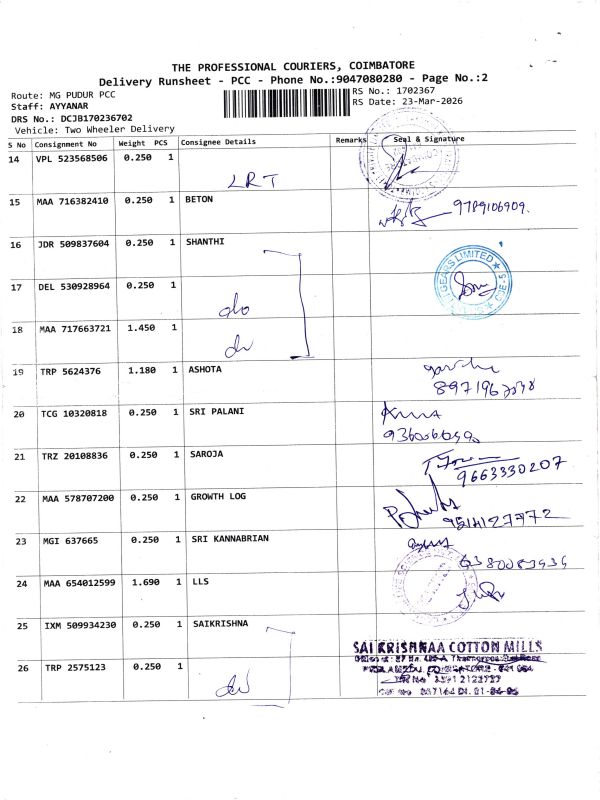 THE PROFESSIONAL COURIERS, COIMBATORE
Delivery Runsheet - PCC - Phone No.:9047080280 - Page No.:2
Route: MG PUDUR PCC
RS No.: 1702367
Staff: AYYANAR
RS Date: 23-Mar-2026
DRS No.: DCJB170236702
Vehicle: Two Wheeler Delivery
S No Consignment No Weight PCS Consignee Details Remarks Seal & Signature
14 VPL 523568506 0.250 1 LRT
15 MAA 716382410 0.250 1 BETON 9789106909.
16 JDR 509837604 0.250 1 SHANTHI
GEARS LIMITED
17 DEL 530928964 0.250 1 do
18 MAA 717663721 1.450 1 do
19 TRP 5624376 1.180 1 ASHOTA
20 TCG 10320818 0.250 1 SRI PALANI
21 TRZ 20108836 0.250 1 SAROJA 9663330207
22 MAA 578707200 0.250 1 GROWTH LOG
23 MGI 637665 0.250 1 SRI KANNABRIAN
24 MAA 654012599 1.690 1 LLS
25 IXM 509934230 0.250 1 SAIKRISHNA
SAI KRISHNAA COTTON MILLS
26 TRP 2575123 0.250 1 do